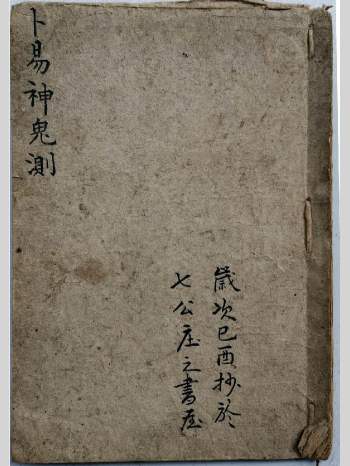 卜易神鬼測
歲次己酉抄於
七公庄之書屋